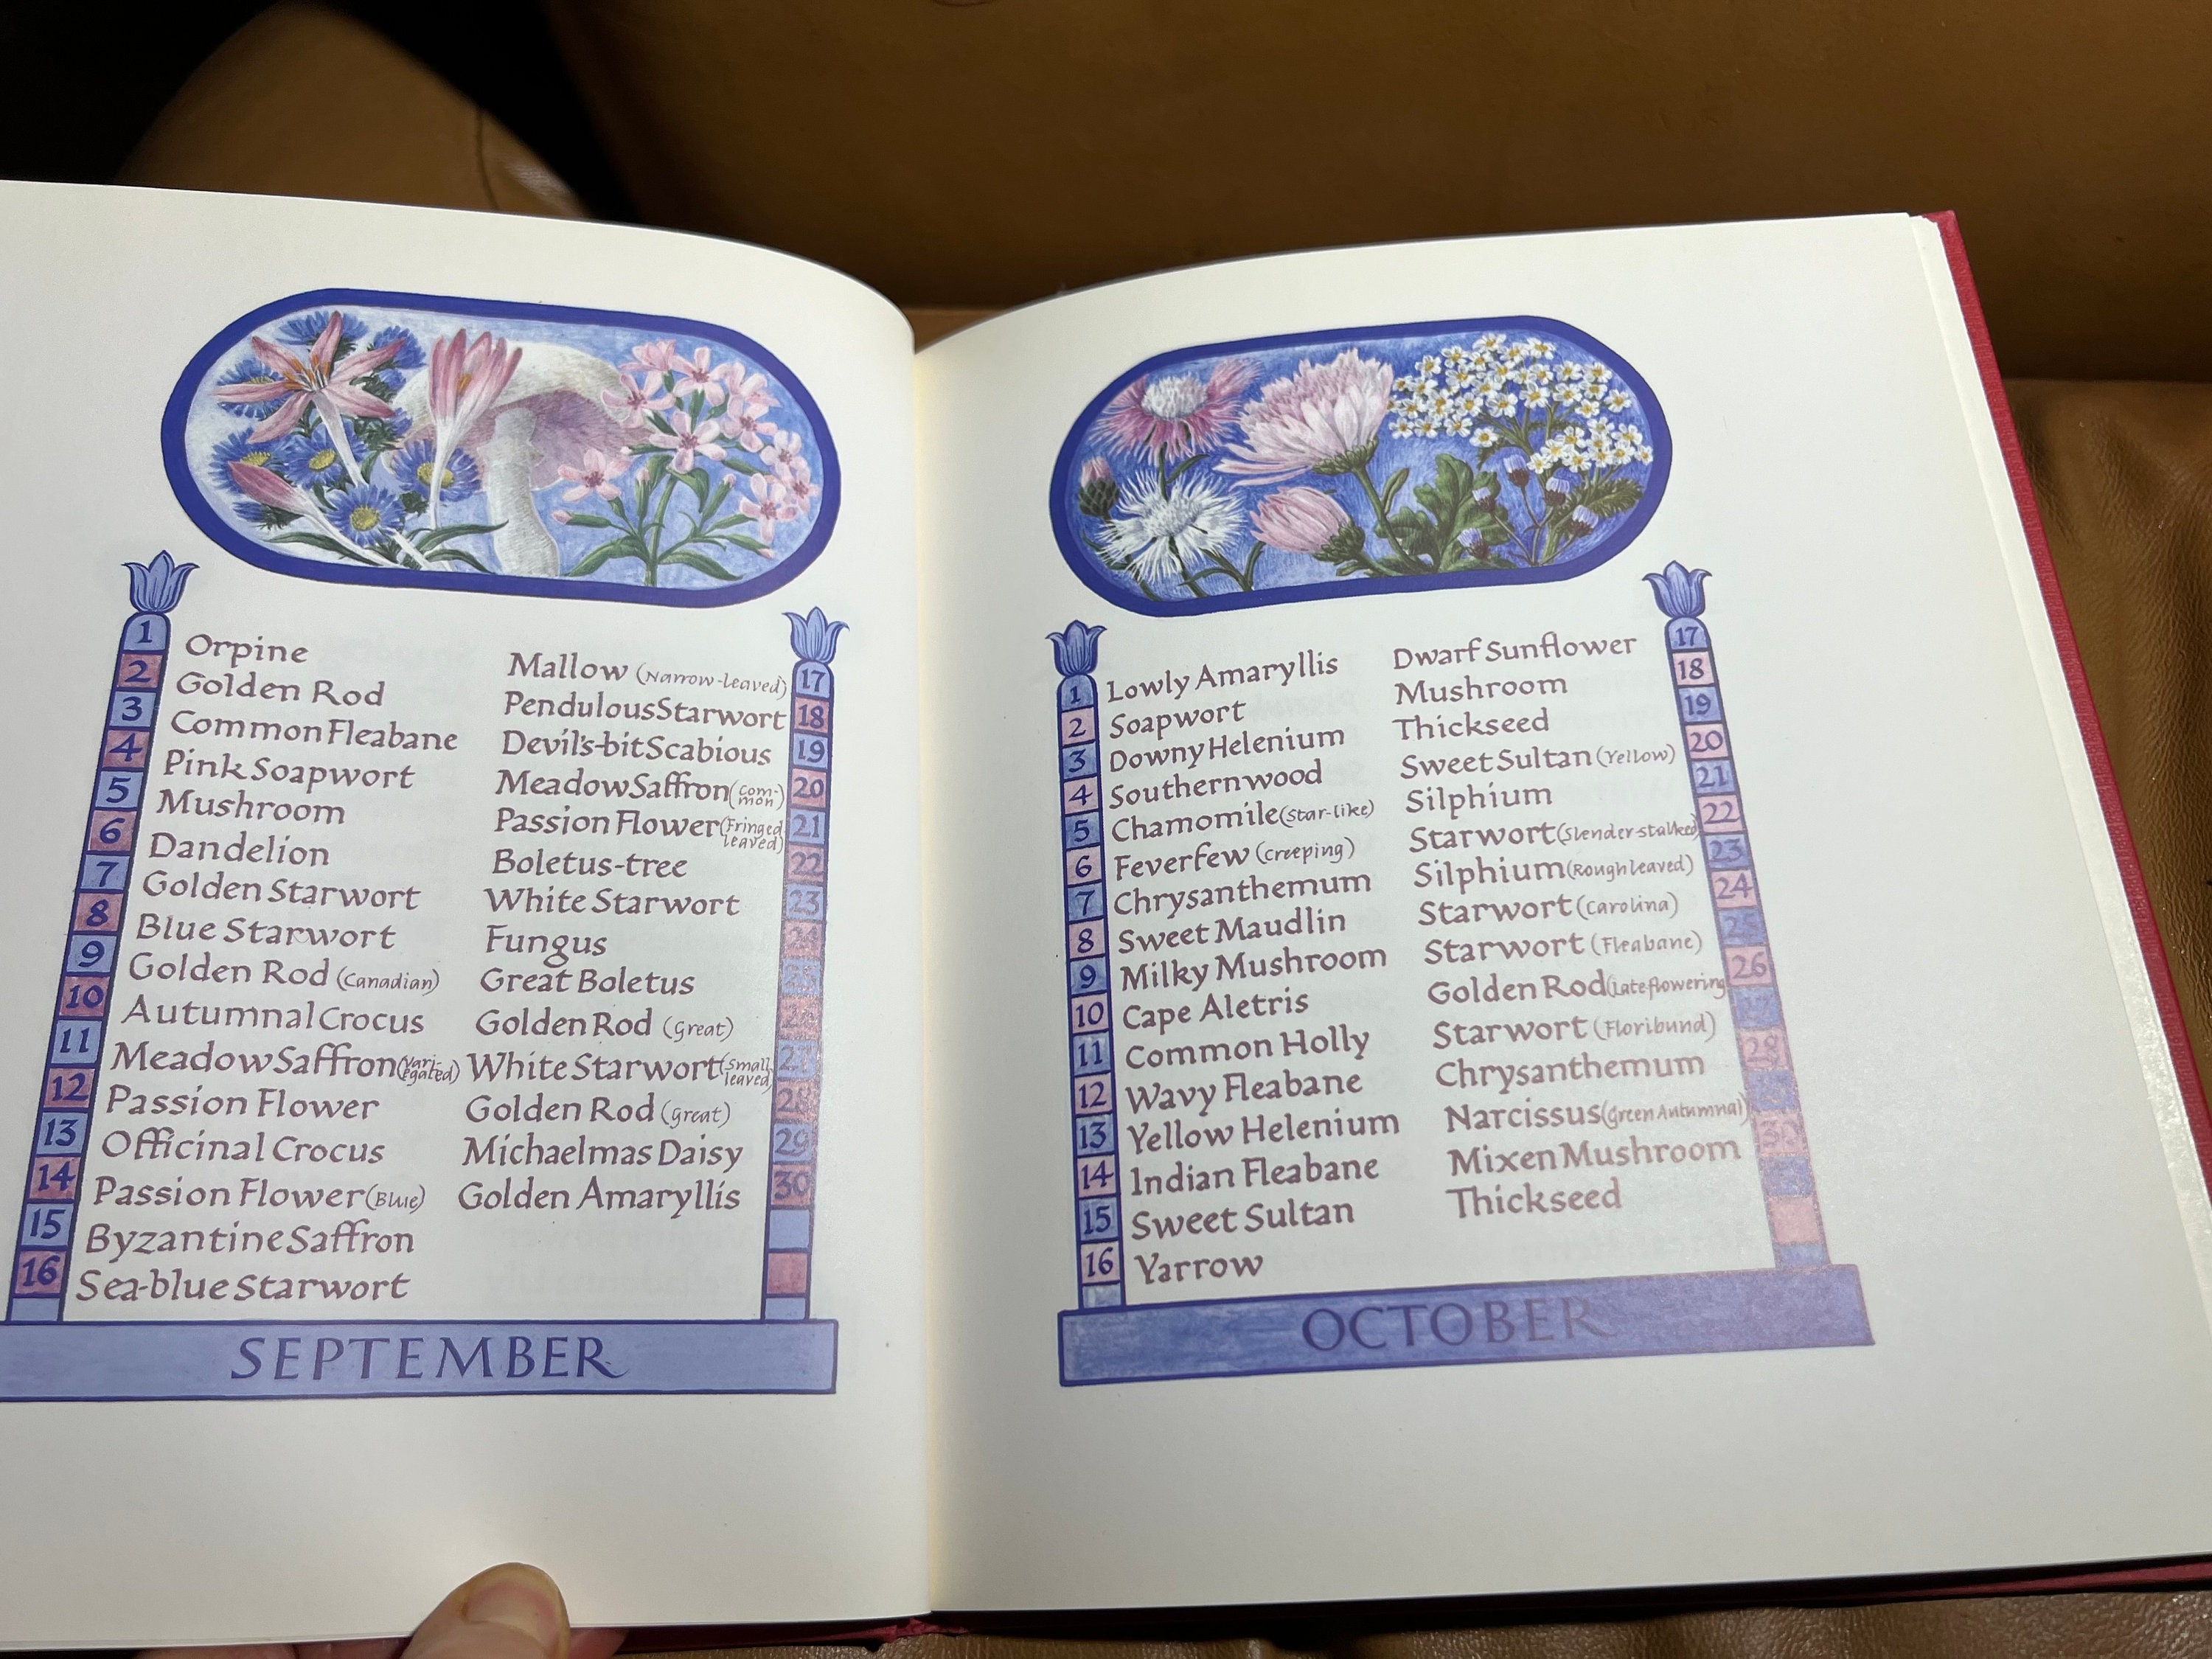 1 Orpine
2 Golden Rod
3 Common Fleabane
4 Pink Soapwort
5 Mushroom
6 Dandelion
7 Golden Starwort
8 Blue Starwort
9 Golden Rod (Canadian)
10 Autumnal Crocus
11 Meadow Saffron (Vari-egated)
12 Passion Flower
13 Officinal Crocus
14 Passion Flower (Blue)
15 Byzantine Saffron
16 Sea-blue Starwort
Mallow (Narrow-leaved) 17
Pendulous Starwort 18
Devil's-bit Scabious 19
Meadow Saffron (com-mon) 20
Passion Flower (Fringed leaved) 21
Boletus-tree 22
White Starwort 23
Fungus 24
Great Boletus 25
Golden Rod (Great) 26
White Starwort (Small leaved) 27
Golden Rod (Great) 28
Michaelmas Daisy 29
Golden Amaryllis 30
SEPTEMBER
1 Lowly Amaryllis
2 Soapwort
3 Downy Helenium
4 Southernwood
5 Chamomile (Star-like)
6 Feverfew (Creeping)
7 Chrysanthemum
8 Sweet Maudlin
9 Milky Mushroom
10 Cape Aletris
11 Common Holly
12 Wavy Fleabane
13 Yellow Helenium
14 Indian Fleabane
15 Sweet Sultan
16 Yarrow
Dwarf Sunflower 17
Mushroom 18
Thickseed 19
Sweet Sultan (Yellow) 20
Silphium 21
Starwort (Slender-stalked) 22
Silphium (Rough leaved) 23
Starwort (Carolina) 24
Starwort (Fleabane) 25
Golden Rod (Late flowering) 26
Starwort (Floribund) 27
Chrysanthemum 28
Narcissus (Green Autumnal) 29
Mixen Mushroom 30
Thickseed
OCTOBER